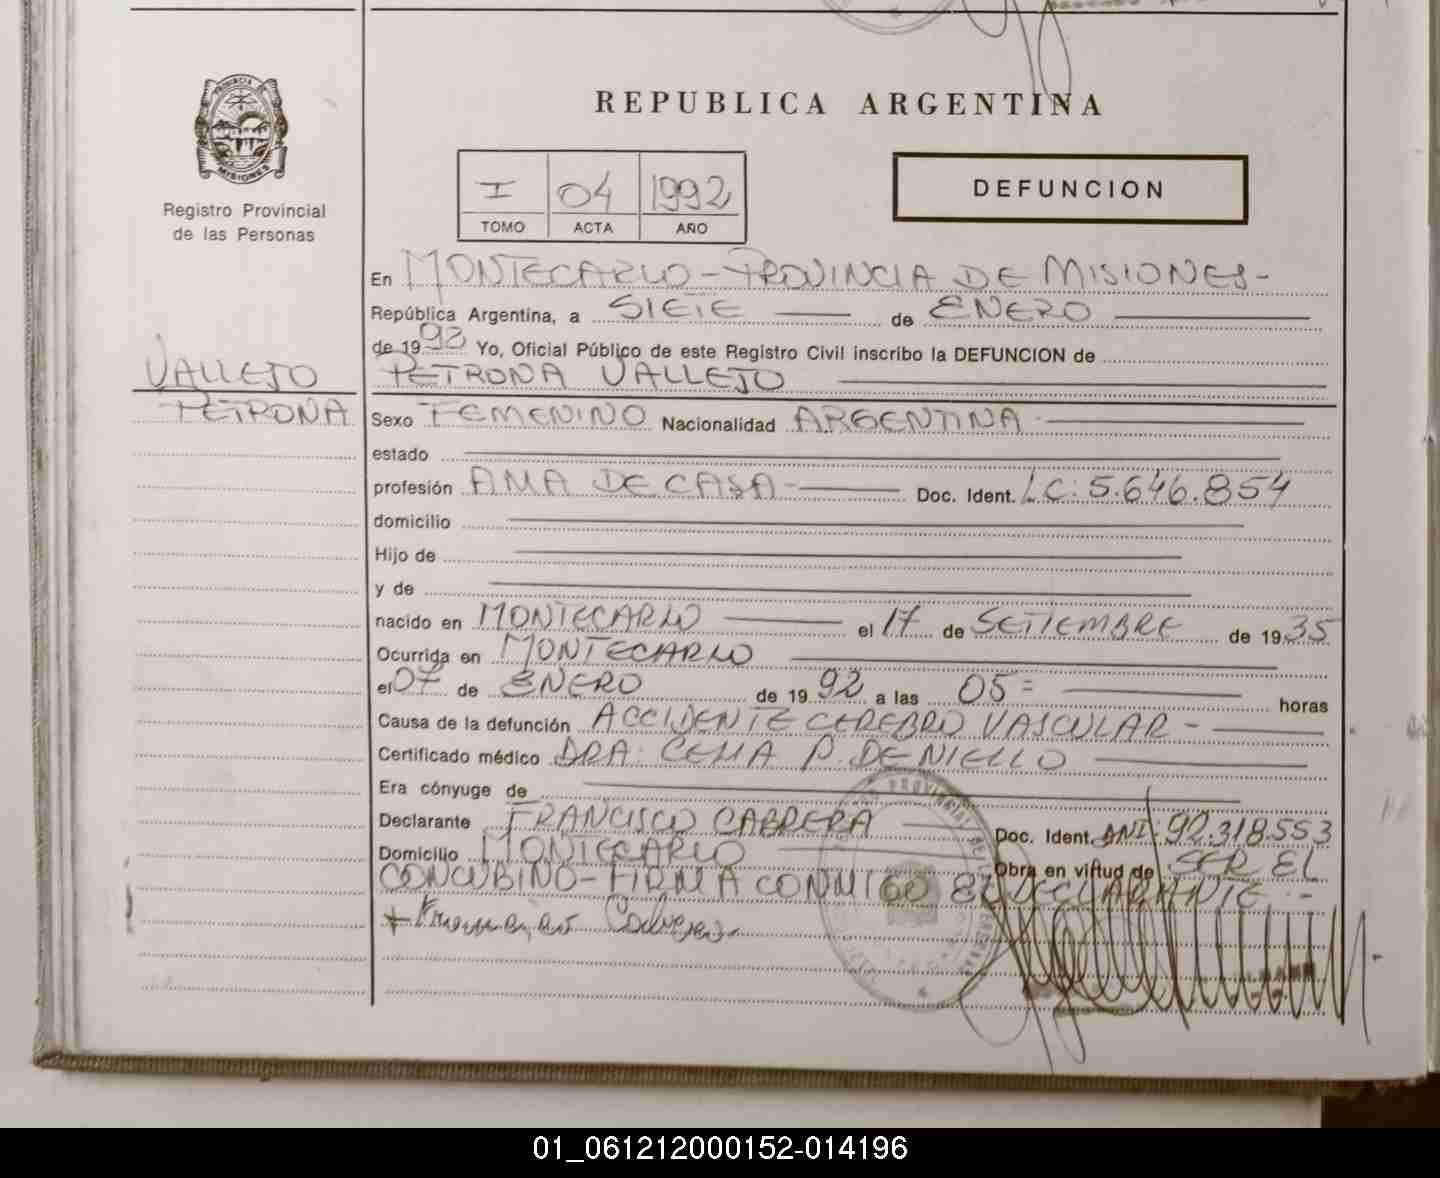 REPUBLICA ARGENTINA
PROVINCIA DE
MISIONES
Registro Provincial
de las Personas
I 04 1992
TOMO ACTA AÑO
DEFUNCION
En MONTECARLO - PROVINCIA DE MISIONES -
República Argentina, a SIETE de ENERO
de 1992 Yo, Oficial Público de este Registro Civil inscribo la DEFUNCION de
PETRONA VALLEJO
VALLEJO
PETRONA
Sexo FEMENINO Nacionalidad ARGENTINA -
estado
profesión AMA DE CASA - Doc. Ident. LC: 5.646.854
domicilio
Hijo de
y de
nacido en MONTECARLO el 17 de SETIEMBRE de 1935
Ocurrida en MONTECARLO
el 07 de ENERO de 1992 a las 05= horas
Causa de la defunción ACCIDENTE CEREBRO VASCULAR -
Certificado médico DRA. CELIA P. DE NIELLO
Era cónyuge de
Declarante FRANCISCO CABRERA Doc. Ident. DNI: 92.318.553
Domicilio MONTECARLO Obra en virtud de SER EL
CONCUBINO - FIRMA CONMIGO EL DECLARANTE. -
01_061212000152-014196